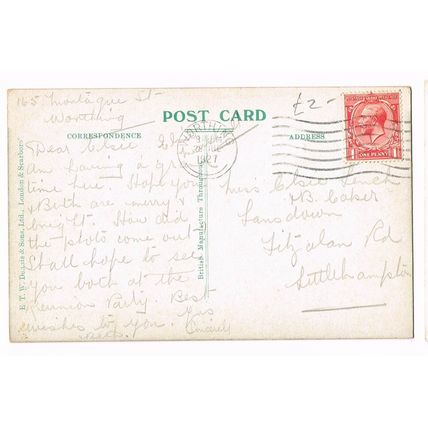 165 Montague St
Worthing
£2-
POST CARD
CORRESPONDENCE
ADDRESS
WORTHING
1927
ONE PENNY
Dear Elsie
Am having a
time here. Hope you
& Beth are merry &
bright. How did
the photos come out
Shall hope to see
you both at the
Reunion Party. Best
wishes to you.
Yrs
Sincerely
Miss Elsie
Lansdown
Fitzalan Rd
Littlehampton
E. T. W. Dennis & Sons, Ltd., London & Scarboro'
British Manufacture Throughout